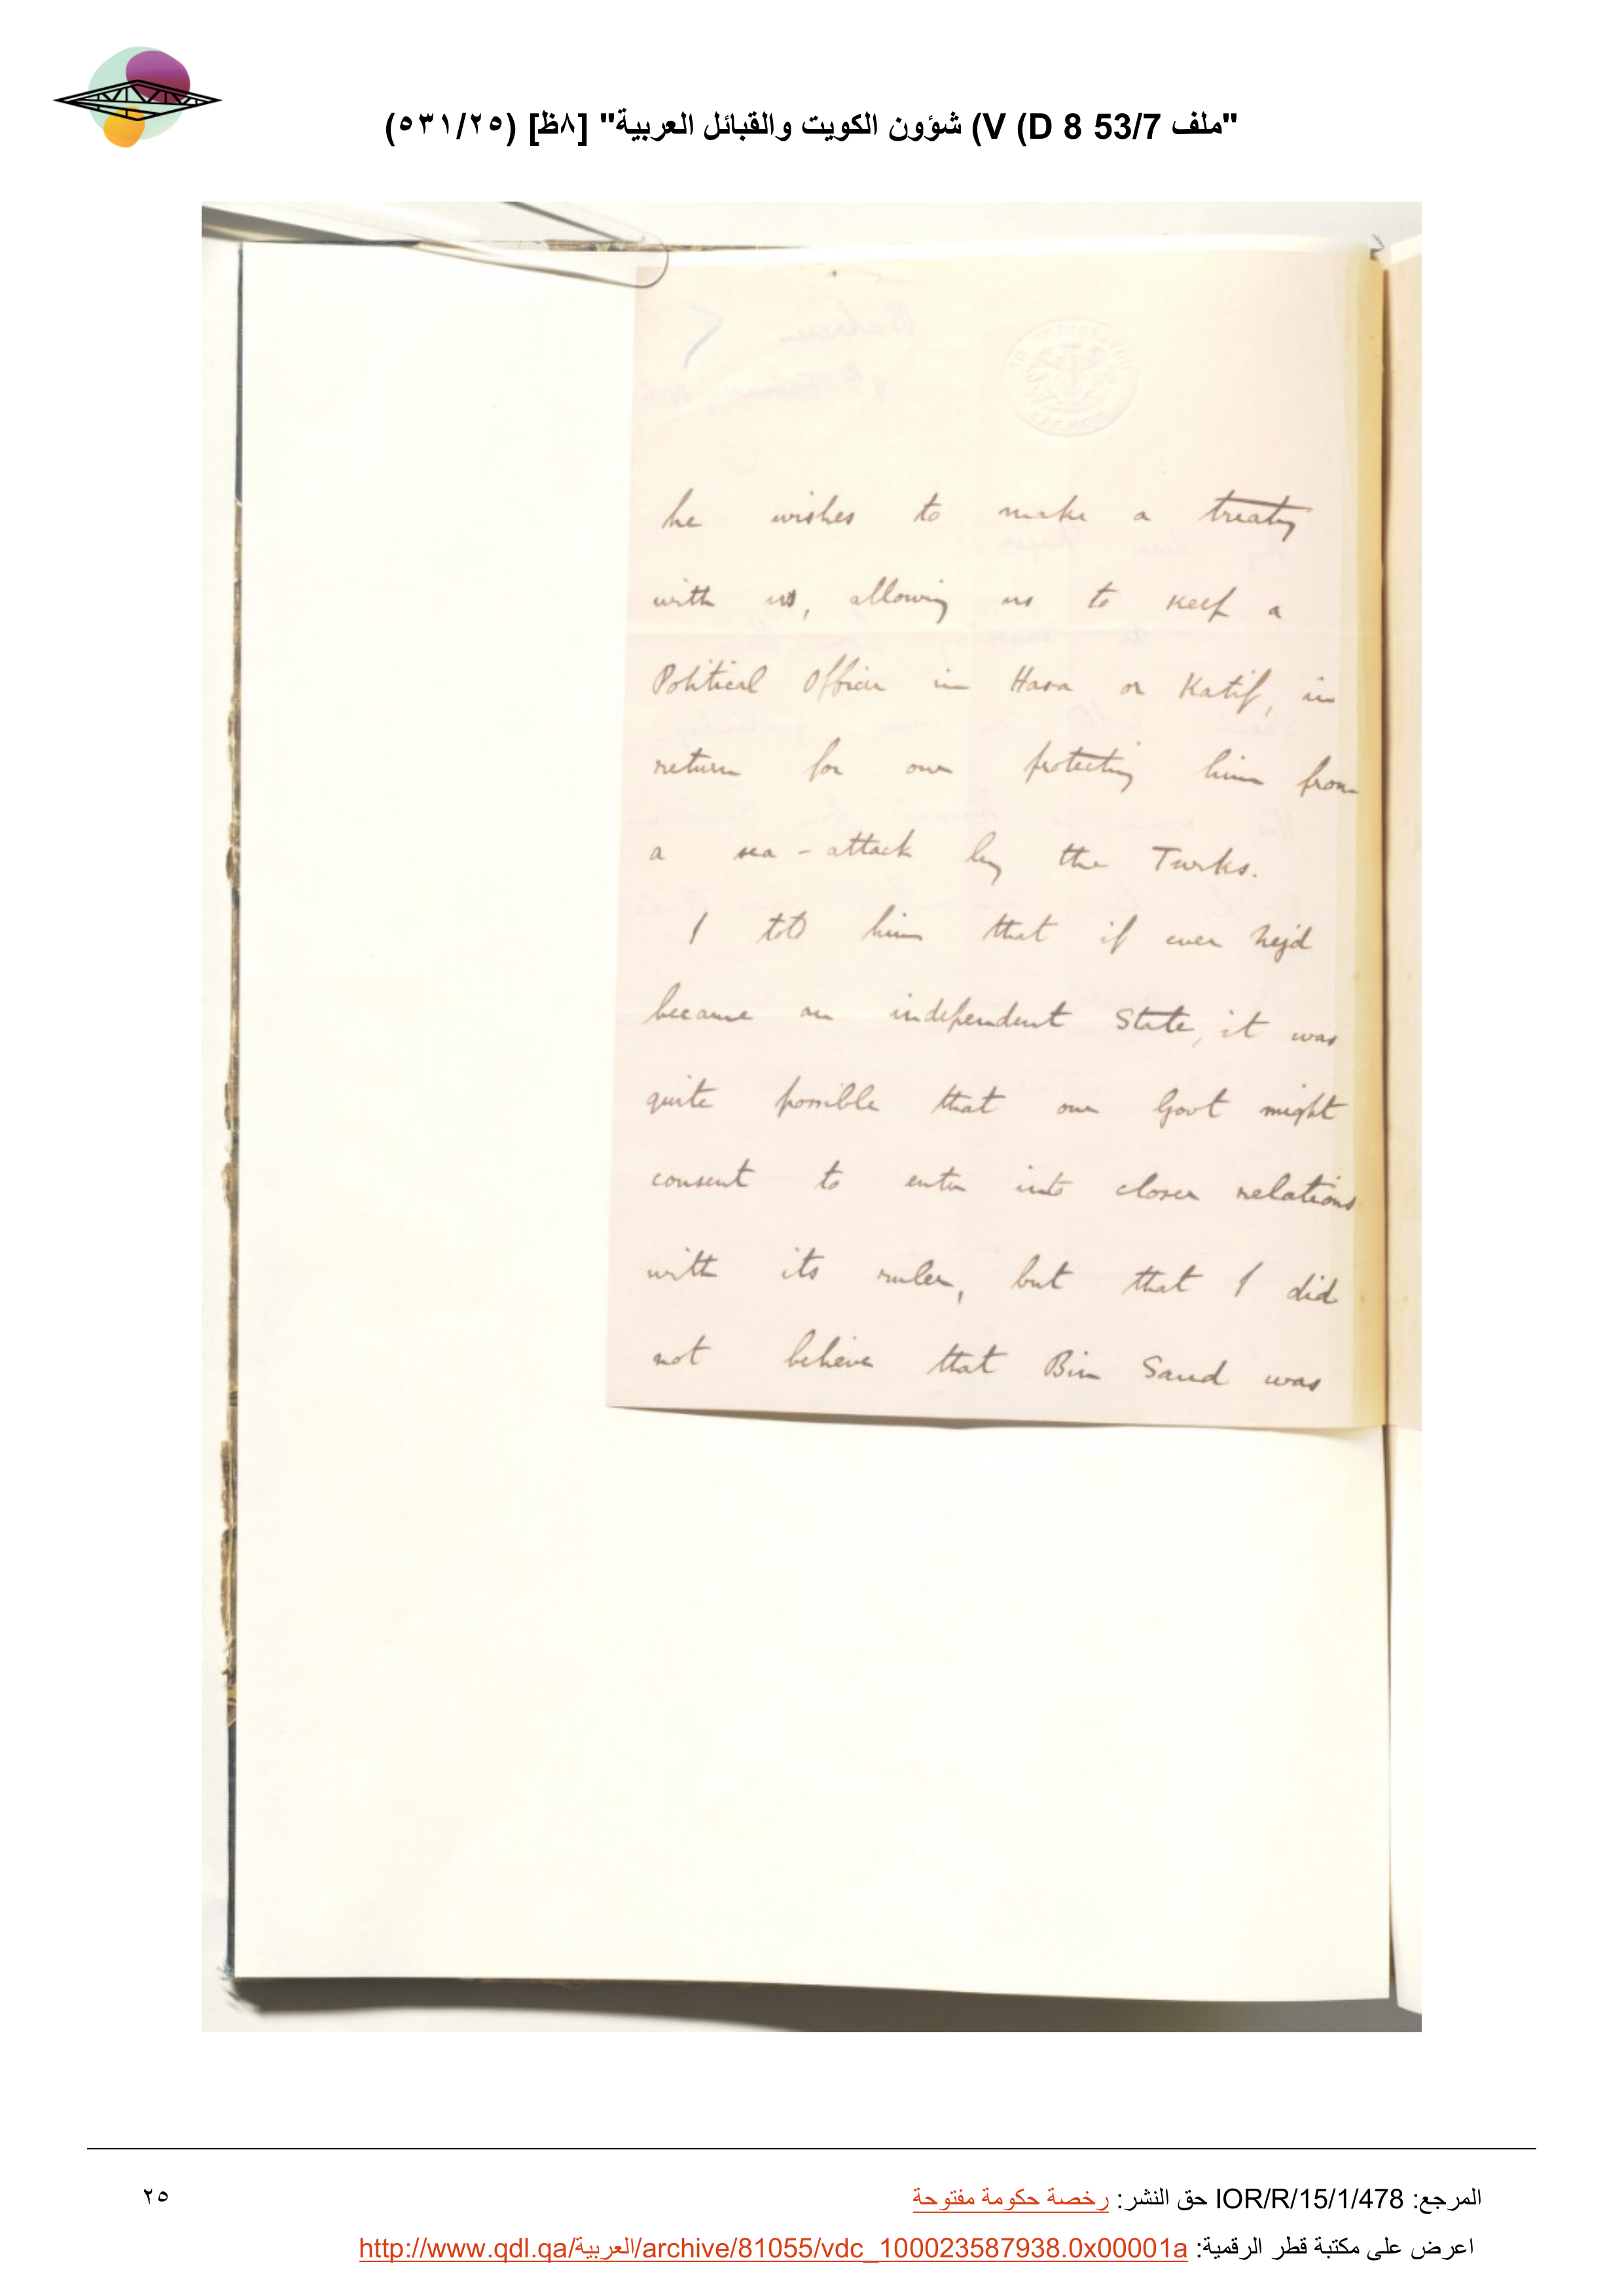 "ملف 53/7 V (D 8) شؤون الكويت والقبائل العربية" [٨ظ] (٥٣١/٢٥)
he wishes to make a treaty
with us, allowing us to keep a
Political Officer in Hasa or Katif, in
return for our protecting him from
a sea-attack by the Turks.
I told him that if ever Nejd
became an independent State, it was
quite possible that our Govt might
consent to enter into closer relations
with its ruler, but that I did
not believe that Bin Saud was
المرجع: IOR/R/15/1/478 حق النشر: رخصة حكومة مفتوحة
٢٥
اعرض على مكتبة قطر الرقمية: http://www.qdl.qa/العربية/archive/81055/vdc_100023587938.0x00001a